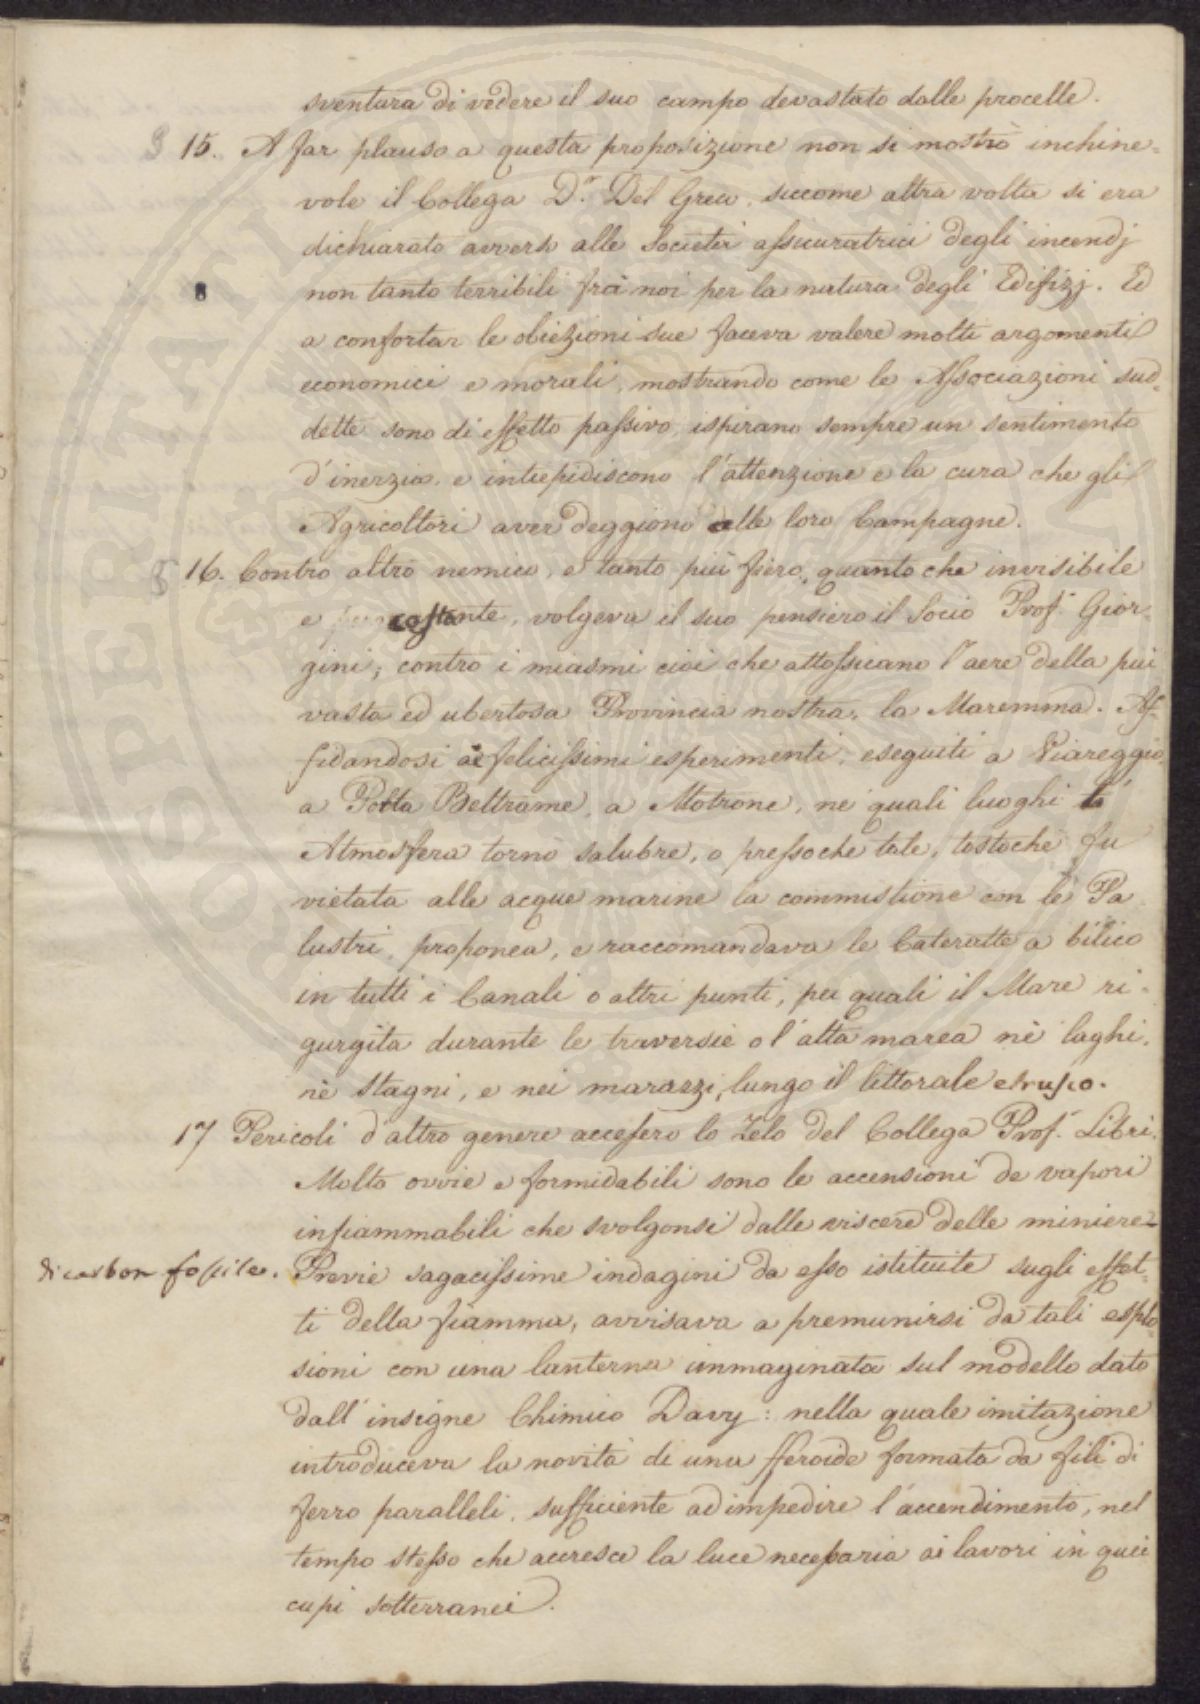 sventura di vedere il suo campo devastato dalle procelle.
§ 15. A far plauso a questa proposizione non si mostrò inchine-
vole il Collega D.r Del Greco, siccome altra volta si era
dichiarato avverso alle Società assicuratrici degli incendj
non tanto terribili frà noi per la natura degli Edifizj. Ed
a confortar le obiezioni sue faceva valere molti argomenti
economici e morali, mostrando come le Associazioni sud-
dette sono di effetto passivo, ispirano sempre un sentimento
d'inerzia, e intiepidiscono l'attenzione e la cura che gli
Agricoltori aver deggiono alle loro Campagne.
§ 16. Contro altro nemico, e tanto più fiero, quanto che invisibile
e costante, volgeva il suo pensiero il Socio Prof. Gior-
gini; contro i miasmi cioè che attossicano l'aere della più
vasta ed ubertosa Provincia nostra, la Maremma. Af-
fidandosi ai felicissimi esperimenti, eseguiti a Viareggio,
a Motrone, ne' quali luoghi l'
Atmosfera tornò salubre, o pressochè tale, tostochè fu
vietata alle acque marine la commistione con le Pa
lustri, proponea, e raccomandava le Cateratte a bilico
in tutti i Canali o altri punti, pei quali il Mare ri-
gurgita durante le traversie o l'alta marea nè laghi,
nè stagni, e nei marazzi, lungo il littorale etrusco.
17 Pericoli d'altro genere accesero lo Zelo del Collega Prof. Libri.
Molto ovvie e formidabili sono le accensioni de vapori
infiammabili che svolgonsi dalle viscere delle miniere
di carbon fossile. Previe sagacissime indagini da esso istituite sugli effet-
ti della fiamma, avvisava a premunirsi da tali esplo-
sioni con una lanterna immaginata sul modello dato
dall'insigne Chimico Davy: nella quale imitazione
introduceva la novità di una sferoide formata da fili di
ferro paralleli, sufficiente ad impedire l'accendimento, nel
tempo stesso che accresce la luce necessaria ai lavori in quei
cupi sotterranei.